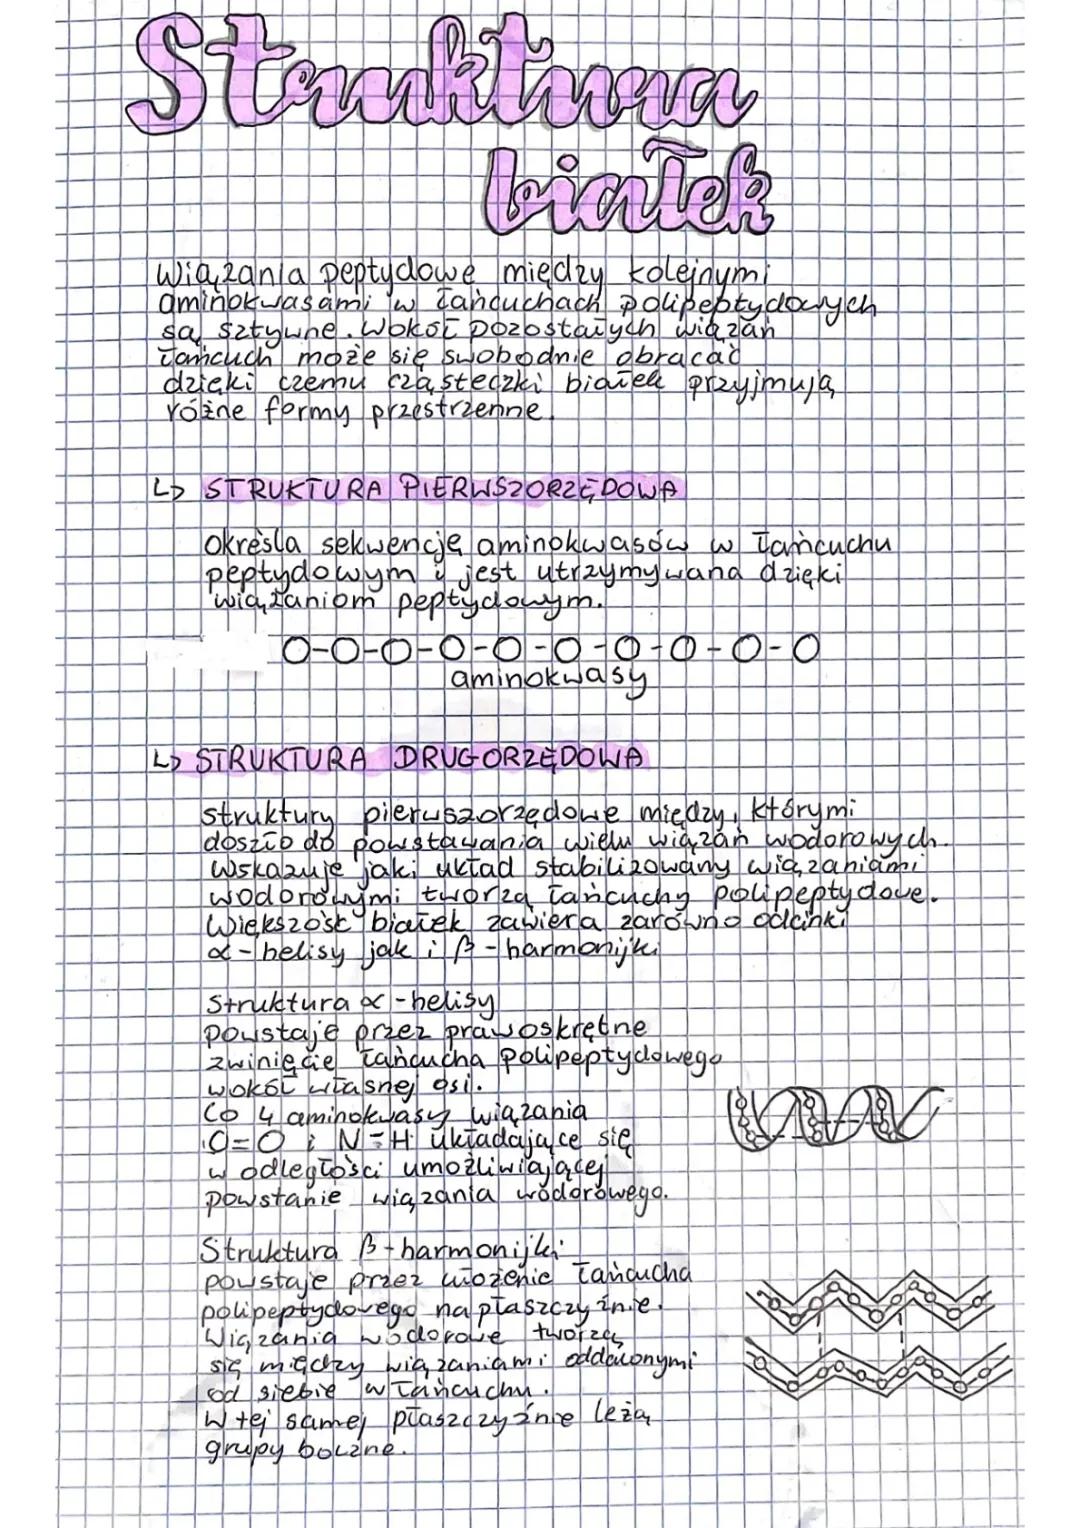 Struktura
białek
Wiązania peptydowe między kolejnymi
aminokwasami w łańcuchach polipeptydowych
są sztywne. Wokół pozostałych wiązań
łańcuch może się swobodnie obracać
dzięki czemu cząsteczki białek przyjmują
różne formy przestrzenne.
↳ STRUKTURA PIERWSZORZĘDOWA
określa sekwencję aminokwasów w łańcuchu
peptydowym i jest utrzymywana dzięki
wiązaniom peptydowym.
O-O-O-O-O-O-O-O-O-O
aminokwasy
↳ STRUKTURA DRUGORZĘDOWA
struktury pierwszorzędowe między, którymi
doszło do powstawania wielu wiązań wodorowych.
Wskazuje jaki układ stabilizowany wiązaniami
wodorowymi tworzą łańcuchy polipeptydowe.
Większość białek zawiera zarówno odcinki
α-helisy jak i β-harmonijki
Struktura α-helisy
powstaje przez prawoskrętne
zwinięcie łańcucha polipeptydowego
wokół własnej osi.
Co 4 aminokwasy wiązania
C=O i N-H układające się
w odległości umożliwiającej
powstanie wiązania wodorowego.
Struktura β-harmonijki
powstaje przez ułożenie łańcucha
polipeptydowego na płaszczyźnie.
Wiązania wodorowe tworzą
się między wiązaniami oddalonymi
od siebie w łańcuchu.
W tej samej płaszczyźnie leżą
grupy boczne.